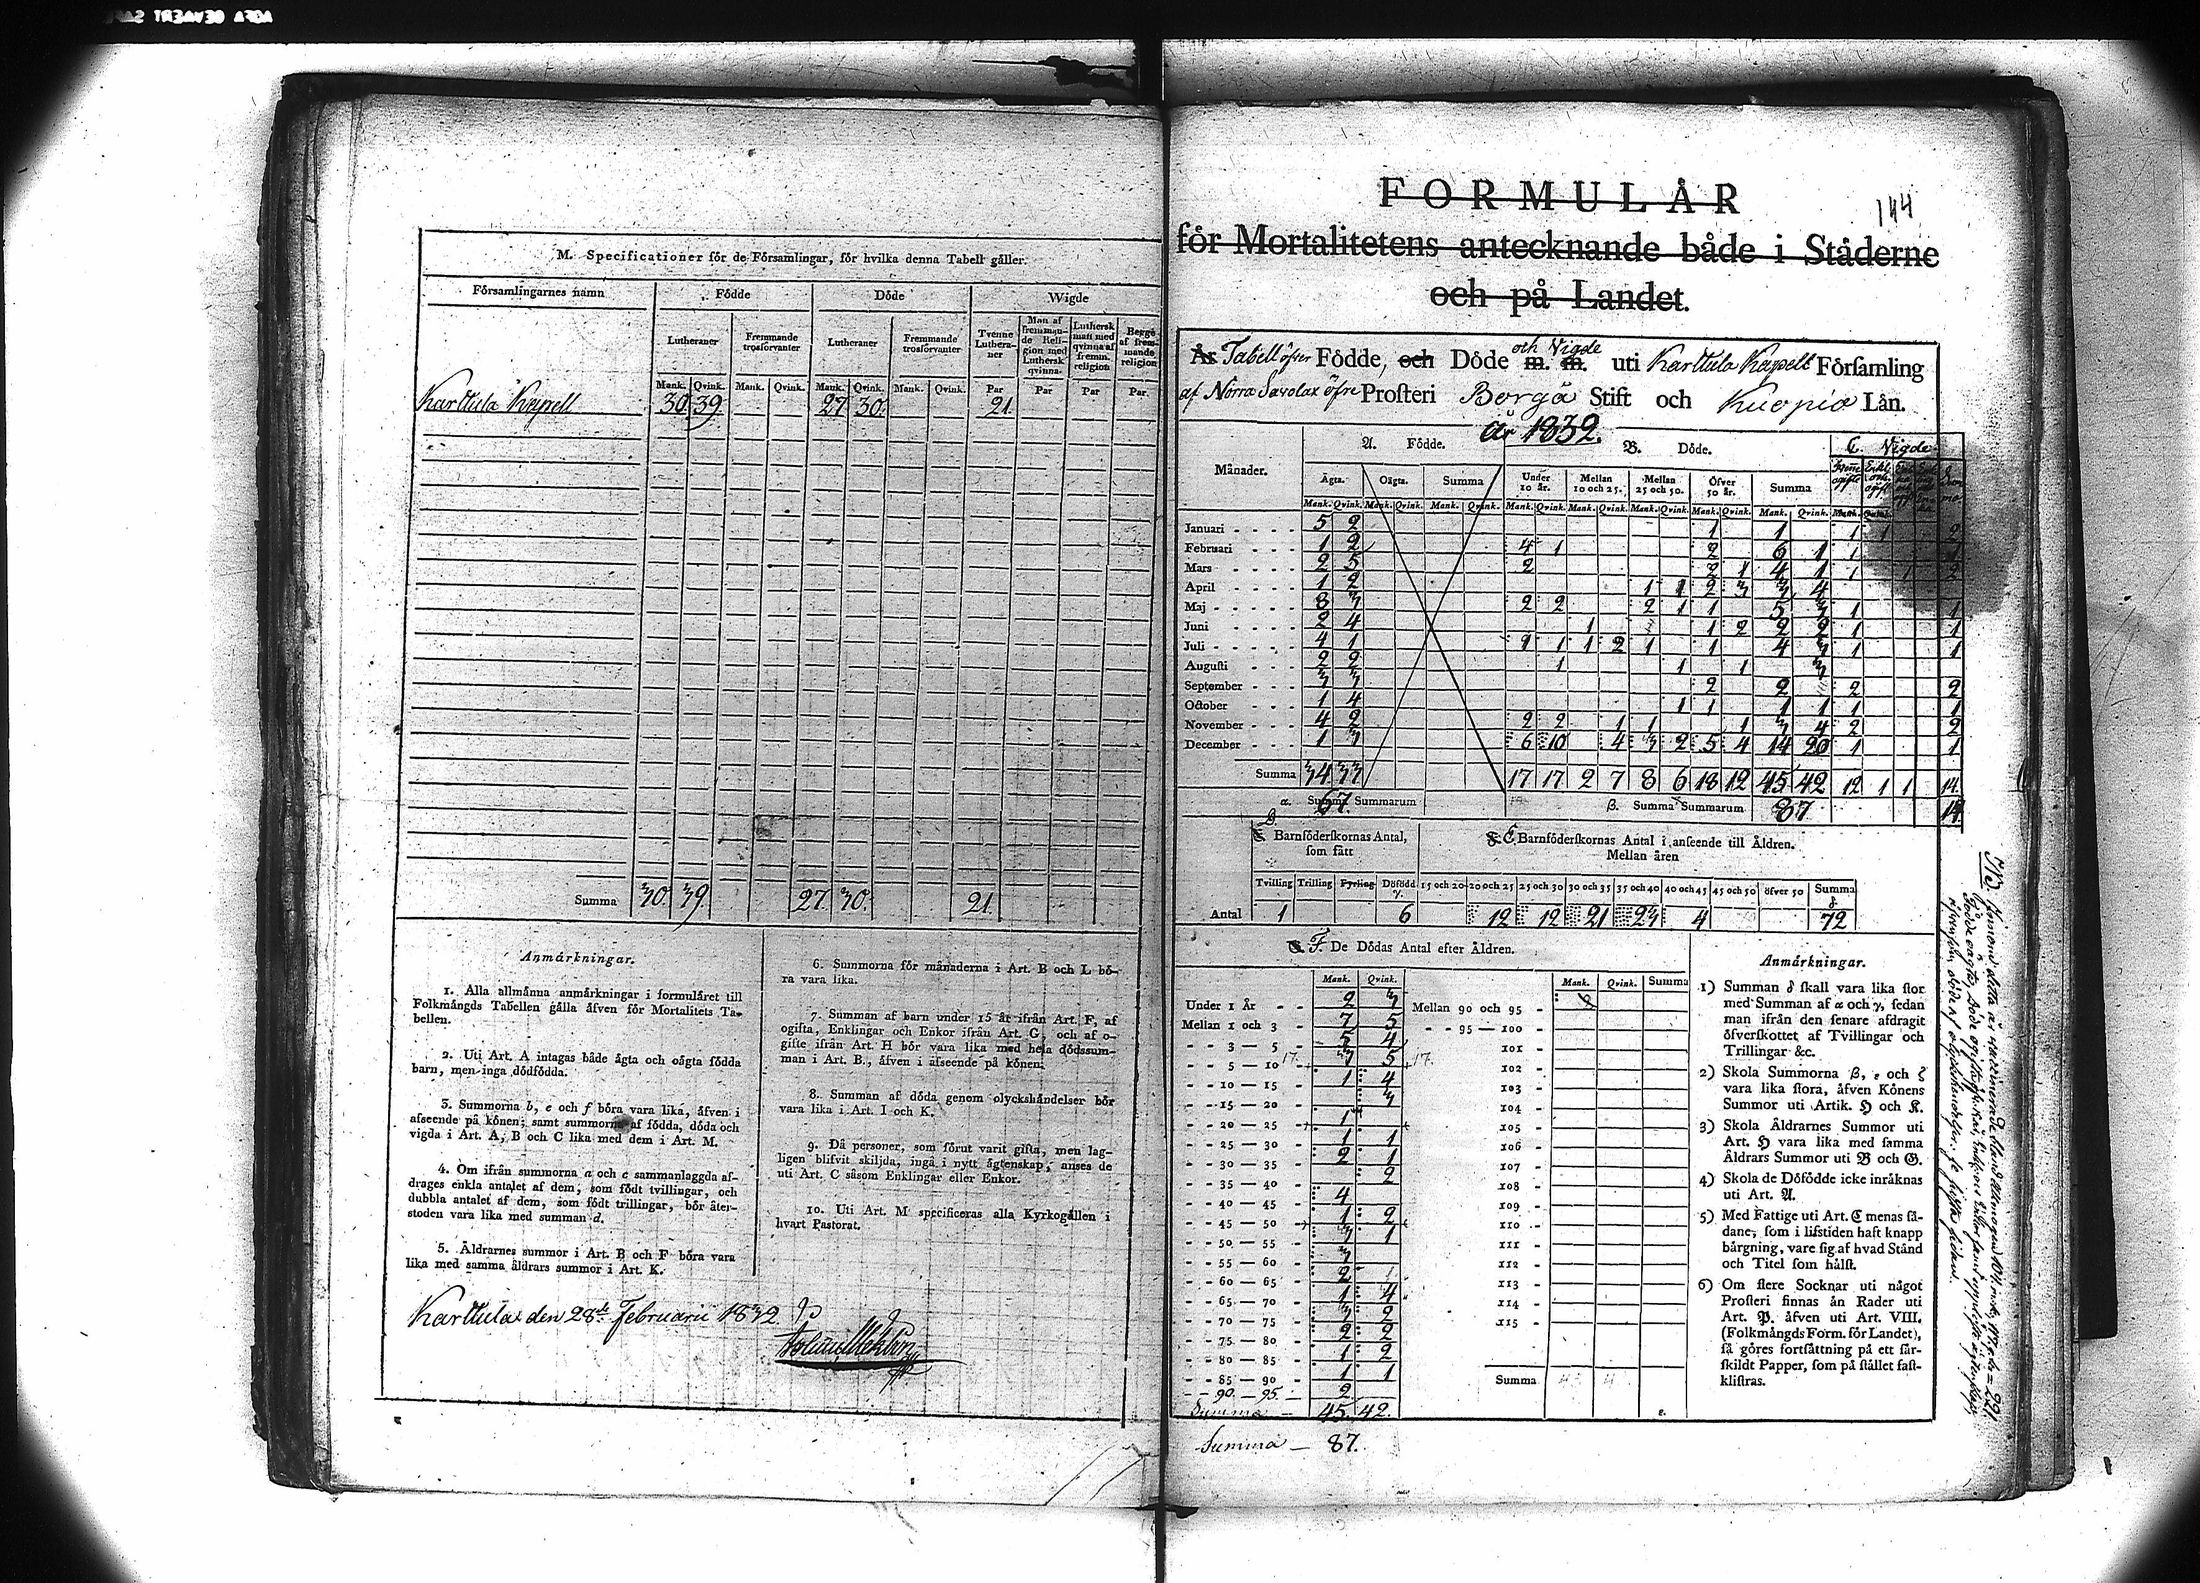 M. Specificationer för de Församlingar, för hvilka denna Tabell gäller.
Församlingarnes namn
Födde
Döde
Wigde
Lutheraner
Fremmande trosförvanter
Lutheraner
Fremmande trosförvanter
Tvenne Lutheraner
Man af fremmande Religion med Luthersk qvinna.
Luthersk man med qvinna af fremm. religion
Begge af fremmande religion
Mank. Qvink. Mank. Qvink. Mank. Qvink. Mank. Qvink. Par Par Par Par.
Karttula Kapell 30 39 27 30. 21.
Summa 30. 39 27. 30. 21.
Anmärkningar.
1. Alla allmänna anmärkningar i formuläret till
Folkmängds Tabellen gälla äfven för Mortalitets Ta-
bellen.
2. Uti Art. A intagas både ägta och oägta födda
barn, men inga dödfödda.
3. Summorna b, e och f böra vara lika, äfven i
afseende på könen; samt summorna af födda, döda och
vigda i Art. A, B och C lika med dem i Art. M.
4. Om ifrån summorna a och c sammanlaggda af-
drages enkla antalet af dem, som födt tvillingar, och
dubbla antalet af dem, som födt trillingar, bör åter-
stoden vara lika med summan d.
5. Äldrarnes summor i Art. B och F böra vara
lika med samma åldrars summor i Art. K.
6. Summorna för månaderna i Art. B och L bö-
ra vara lika.
7. Summan af barn under 15 år ifrån Art. F, af
ogifta, Enklingar och Enkor ifrån Art. G, och af o-
gifte ifrån Art. H bör vara lika med hela dödssum-
man i Art. B., äfven i afseende på könen.
8. Summan af döda genom olyckshändelser bör
vara lika i Art. I och K.
9. Då personer, som förut varit gifta, men lag-
ligen blifvit skiljda, ingå i nytt ägtenskap, anses de
uti Art. C såsom Enklingar eller Enkor.
10. Uti Art. M specificeras alla Kyrkogällen i
hvart Pastorat.
Karttula den 28de Februarii 1832
144
FORMULÄR
för Mortalitetens antecknande både i Städerne
och på Landet.
År Tabell öfver Födde, och Döde och Vigde m. m. uti Karttula Kapell Församling
af Norra Savolax öfre Prosteri Borgå Stift och Kuopio Län.
År 1832.
A. Födde.
B. Döde.
C. Vigde
Månader.
Ägta. Oägta. Summa Under 10 år. Mellan 10 och 25. Mellan 25 och 50. Öfver 50 år. Summa
Mank. Qvink. Mank. Qvink. Mank. Qvink. Mank. Qvink. Mank. Qvink. Mank. Qvink. Mank. Qvink. Mank. Qvink. Mank. Qvink.
Januari 5 2 1 1 1 1 2
Februari 1 2 4 1 2 6 1 1 1
Mars 2 5 2 2 1 4 1 1 1 2
April 1 2 1 1 2 3 3 4
Maj 8 3 2 2 2 1 1 5 3 1 1
Juni 2 4 1 1 2 2 2 1 1
Juli 4 1 1 1 1 2 1 1 4 3 1 1
Augusti 2 2 1 1 1 3
September 3 3 2 2 2 2
October 1 4 1 1 1 1 1 1
November 4 2 2 2 1 1 1 3 4 2 2
December 1 3 6 10 4 3 2 5 4 14 20 1 1
Summa 34 33 17 17 2 7 8 6 18 12 45 42 12 1 1 14.
α. Summa Summarum 67.
β. Summa Summarum 87
14.
D. Barnföderskornas Antal,
som fått
E. Barnföderskornas Antal i anseende till Åldren.
Mellan åren
Tvilling Trilling Fyrling Dödfödd γ 15 och 20 20 och 25 25 och 30 30 och 35 35 och 40 40 och 45 45 och 50 öfver 50 Summa δ
Antal 1 6 12 12 21 23 4 72
F. De Dödas Antal efter Åldren.
Mank. Qvink. Mank. Qvink. Summa
Under 1 År 2 3
Mellan 1 och 3 7 5
3 — 5 5 4
5 — 10 17. 3 5 17.
10 — 15 1 4
15 — 20 3
20 — 25 1
25 — 30 1 1
30 — 35 2 1
35 — 40 2
40 — 45 4
45 — 50 1 2
50 — 55 3 1
55 — 60 3
60 — 65 2
65 — 70 1 4
70 — 75 3 2
75 — 80 2 2
80 — 85 1 2
85 — 90 1 1
90. — 95. 2
Summa 45. 42.
Summa — 87.
Mellan 90 och 95
95 — 100
101
102
103
104
105
106
107
108
109
110
111
112
113
114
115
Summa
Anmärkningar.
1) Summan δ skall vara lika stor
med Summan af α och γ, sedan
man ifrån den senare afdragit
öfverskottet af Tvillingar och
Trillingar &c.
2) Skola Summorna β, ε och ζ
vara lika stora, äfven Könens
Summor uti Artik. H och K.
3) Skola Äldrarnes Summor uti
Art. H vara lika med samma
Äldrars Summor uti B och G.
4) Skola de Dödfödde icke inräknas
uti Art. A.
5) Med Fattige uti Art. E menas så-
dane, som i lifstiden haft knapp
bärgning, vare sig af hvad Stånd
och Titel som hälst.
6) Om flere Socknar uti något
Prosteri finnas än Rader uti
Art. P. äfven uti Art. VIII.
(Folkmängds Form. för Landet),
så göres fortsättning på ett sär-
skildt Papper, som på stället fast-
klistras.